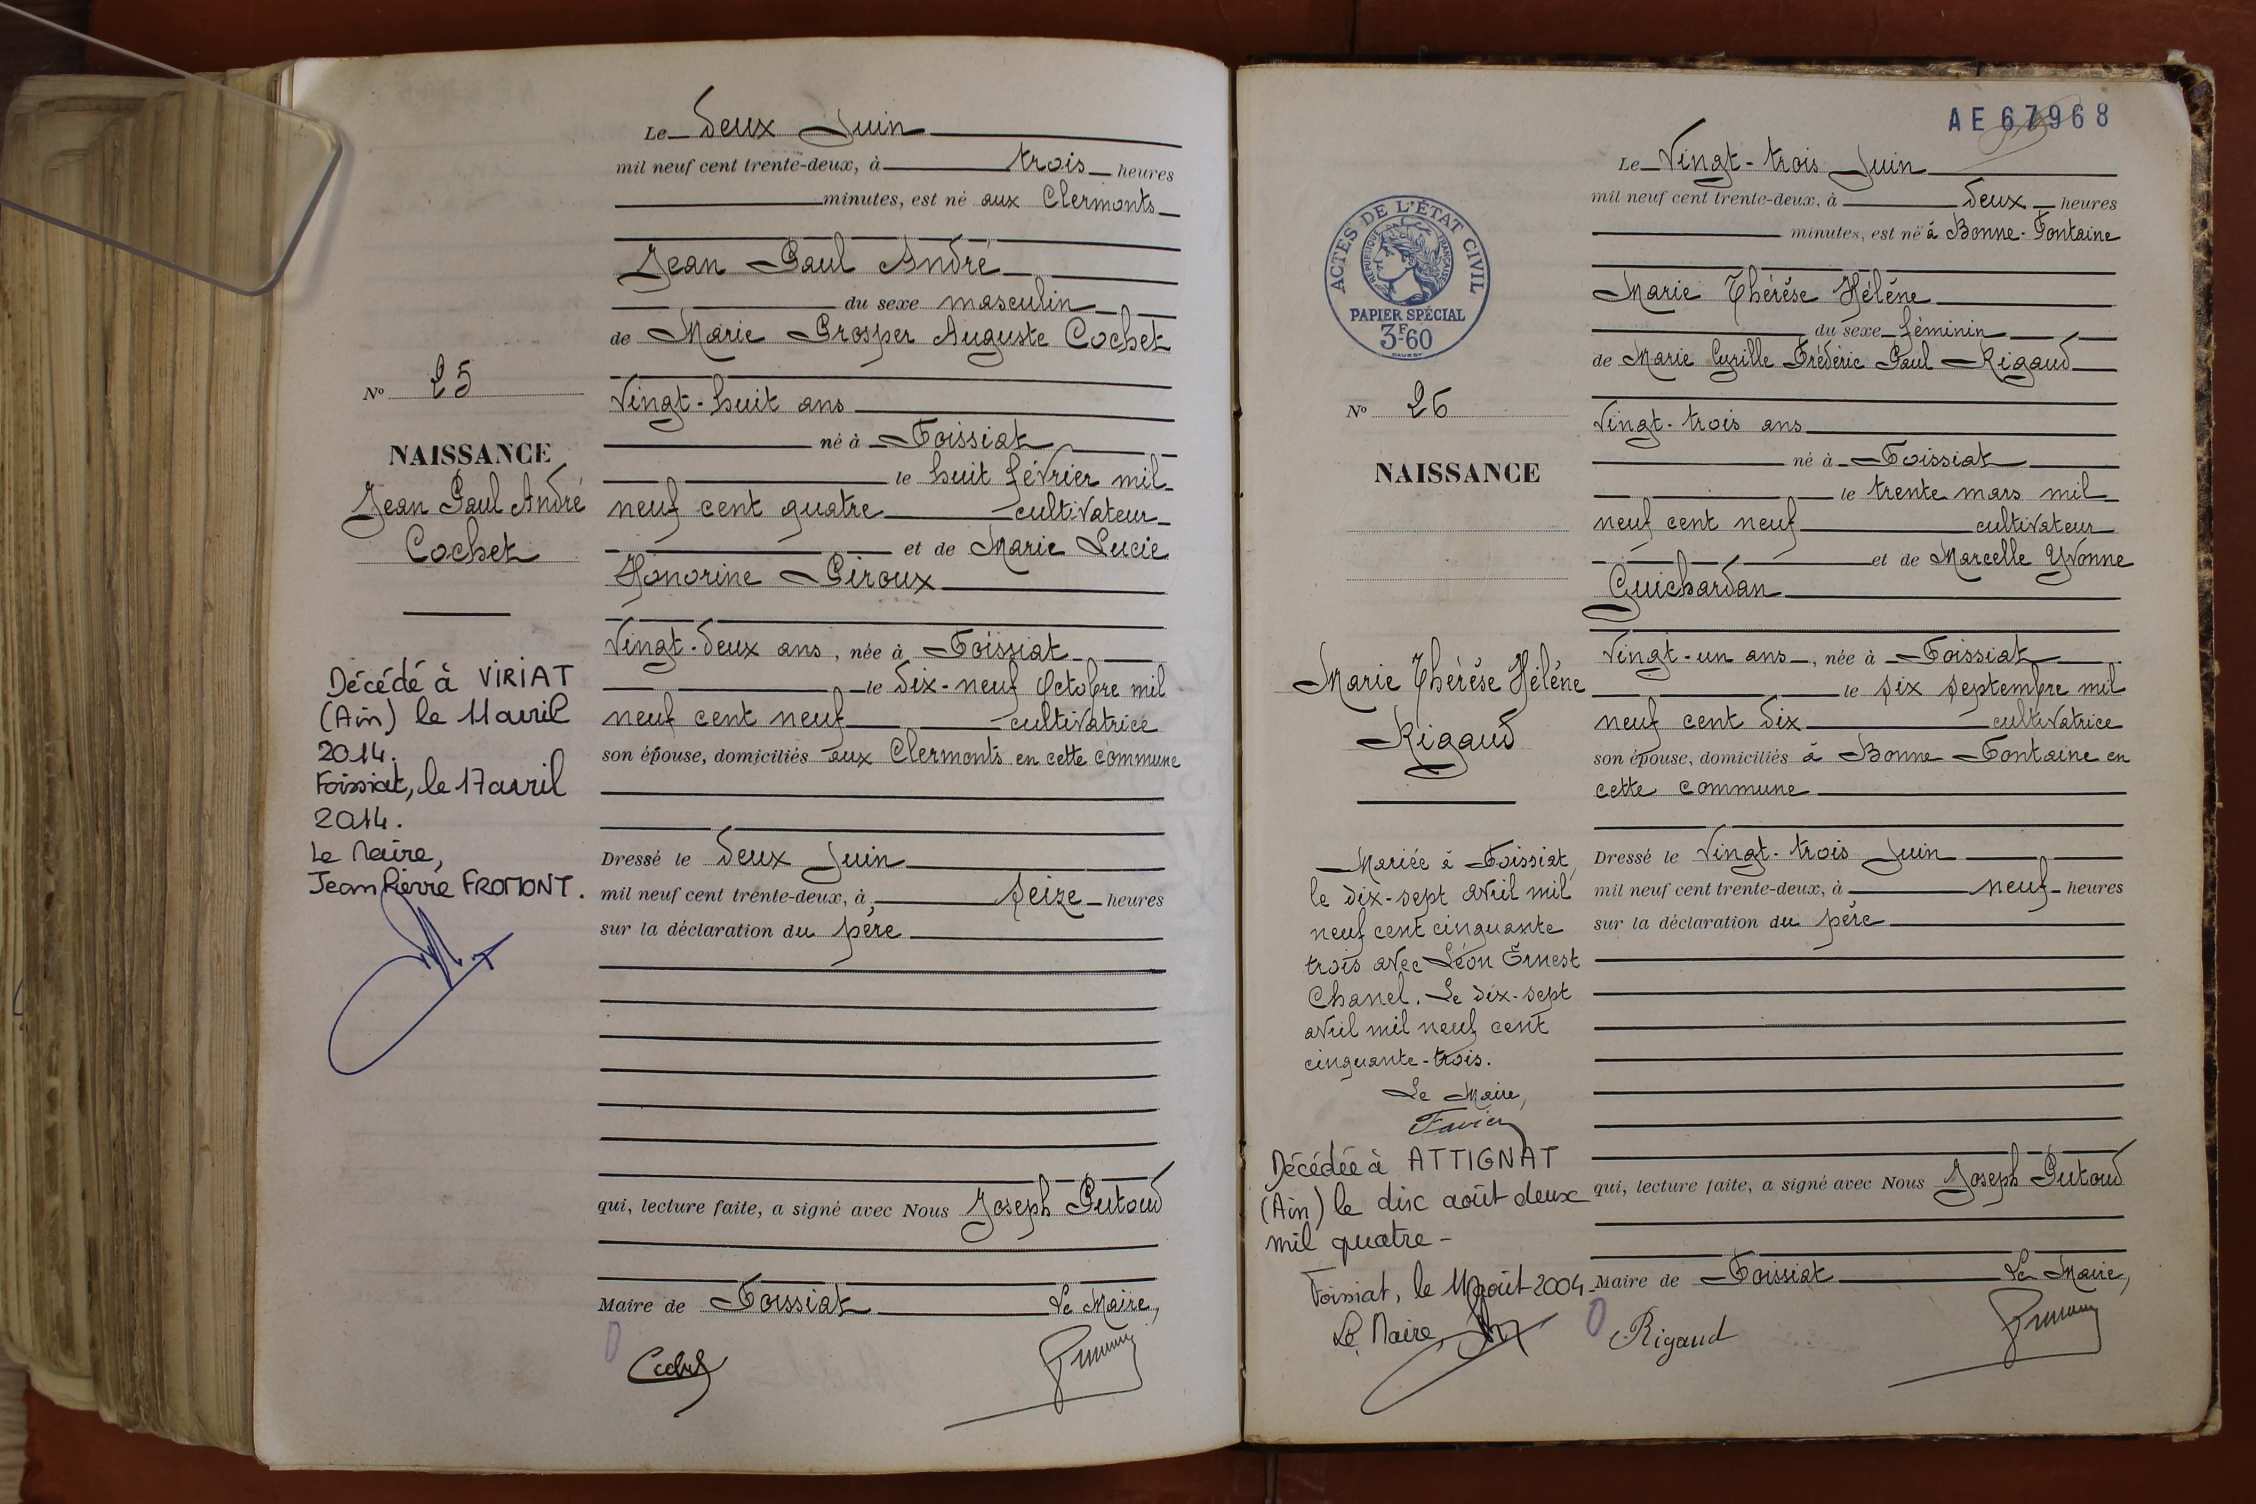 Le Deux Juin
mil neuf cent trente-deux, à trois heures
minutes, est né aux Clermonts
Jean Paul André
du sexe masculin
de Marie Prosper Auguste Cochet
Vingt-huit ans
né à Foissiat
le huit février mil
neuf cent quatre cultivateur
et de Marie Lucie
Honorine Piroux
Vingt-deux ans, née à Foissiat
le dix-neuf Octobre mil
neuf cent neuf cultivatrice
son épouse, domiciliés aux Clermonts en cette commune
Dressé le deux Juin
mil neuf cent trente-deux, à seize heures
sur la déclaration du père
qui, lecture faite, a signé avec Nous Joseph Putoud
Maire de Foissiat Le Maire,
No 25
NAISSANCE
Jean Paul André
Cochet
Décédé à VIRIAT
(Ain) le 11 avril
2014.
Foissiat, le 17 avril
2014.
Le Maire,
Jean Pierre FROMONT.
AE 67968
Le Vingt-trois Juin
mil neuf cent trente-deux, à deux heures
minutes, est né à Bonne-Fontaine
Marie Thérèse Hélène
du sexe féminin
de Marie Cyrille Frédéric Paul Rigaud
Vingt-trois ans
né à Foissiat
le trente mars mil
neuf cent neuf cultivateur
et de Marcelle Yvonne
Guichardan
Vingt-un ans, née à Foissiat
le six septembre mil
neuf cent dix cultivatrice
son épouse, domiciliés à Bonne Fontaine en
cette commune
Dressé le Vingt-trois Juin
mil neuf cent trente-deux, à neuf heures
sur la déclaration du père
qui, lecture faite, a signé avec Nous Joseph Putoud
Maire de Foissiat Le Maire,
Rigaud
ACTES DE L'ÉTAT CIVIL
RÉPUBLIQUE FRANÇAISE
PAPIER SPÉCIAL
3F60
No 26
NAISSANCE
Marie Thérèse Hélène
Rigaud
Mariée à Foissiat,
le dix-sept avril mil
neuf cent cinquante
trois avec Léon Ernest
Chanel. Le dix-sept
avril mil neuf cent
cinquante-trois.
Le Maire,
Favier
Décédée à ATTIGNAT
(Ain) le dix août deux
mil quatre -
Foissiat, le 11 août 2004.
Le Maire,